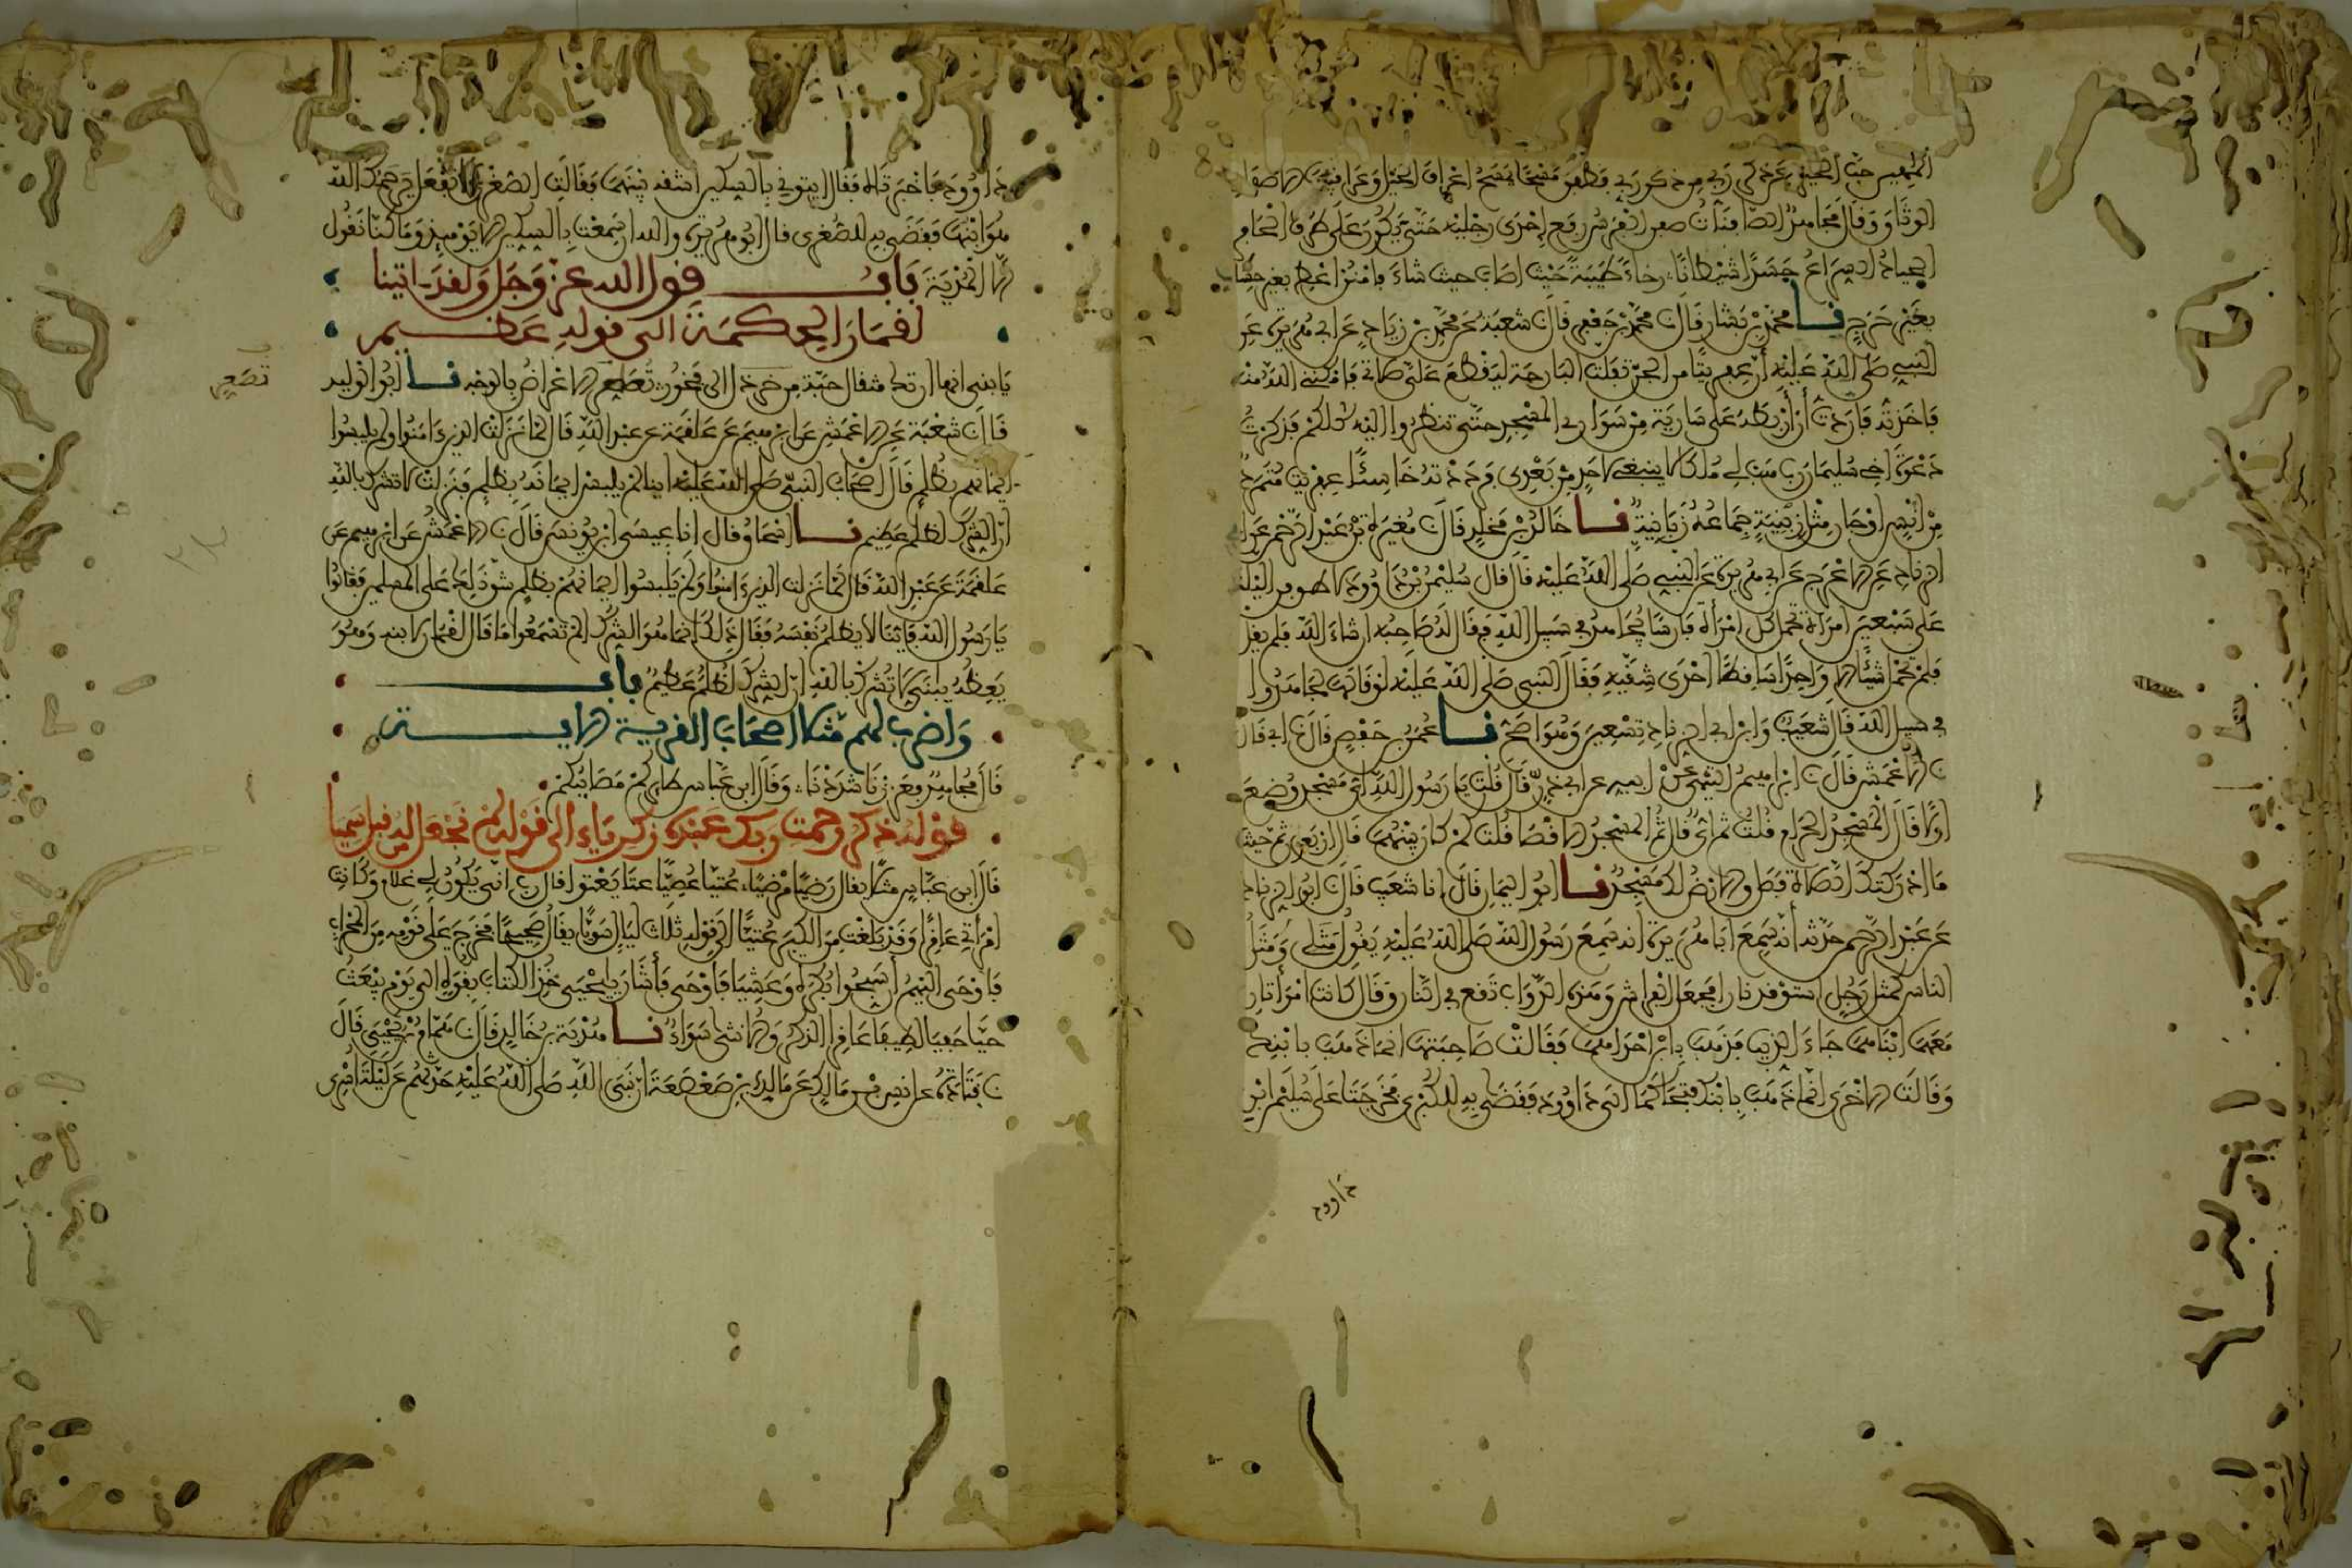 الخير حب الخيل عن ذكر ربي من ذكر ربي فطفق مسحا يمسح اعراف الخيل وعراقيبها الاصفاد
الوثاق وقال مجاهد الصافنات صفن الفرس رفع احدى رجليه حتى يكون على طرف الحافر
الجياد السراع جسدا شيطانا رخاء طيبة حيث اصاب حيث شاء فامنن اعط بغير حساب
بغير حرج نا محمد بن بشار قال نا محمد بن جعفر قال نا شعبة عن محمد بن زياد عن ابي هريرة عن
النبي صلى الله عليه ان عفريتا من الجن تفلت البارحة ليقطع علي صلاتي فامكنني الله منه
فاخذته فاردت ان اربطه على سارية من سواري المسجد حتى تنظروا اليه كلكم فذكرت
دعوة اخي سليمان رب هب لي ملكا لا ينبغي لاحد من بعدي فرددته خاسئا عفريت متمرد
من انس او جان مثل زبنية جماعه زبانية نا خالد بن مخلد قال نا مغيرة بن عبد الرحمن عن ابي
الزناد عن الاعرج عن ابي هريرة عن النبي صلى الله عليه قال قال سليمن بن داوود لاطوفن الليلة
على سبعين امراة تحمل كل امراة فارسا يجاهد في سبيل الله فقال له صاحبه ان شاء الله فلم يقل
فلم تحمل شيئا الا واحدا ساقطا احدى شقيه فقال النبي صلى الله عليه لو قالها لجاهدوا
في سبيل الله قال شعيب وابن ابي الزناد تسعين وهو اصح نا عمر بن حفص قال نا ابي قال
نا الاعمش قال نا ابرهيم التيمي عن ابيه عن ابي ذر قال قلت يا رسول الله اي مسجد وضع
اولا قال المسجد الحرام قلت ثم اي قال ثم المسجد الاقصا قلت كم كان بينهما قال اربعون ثم حيث
ما ادركتك الصلاة فصل والارض لك مسجد نا ابو اليمان قال انا شعيب قال نا ابو الزناد
عن عبد الرحمن حدثه انه سمع ابا هريرة انه سمع رسول الله صلى الله عليه يقول مثلي ومثل
الناس كمثل رجل استوقد نارا فجعل الفراش وهذه الدواب تقع في النار وقال كانت امراتان
معهما ابناهما جاء الذيب فذهب بابن احداهما فقالت صاحبتها انما ذهب بابنك
وقالت الاخرى انما ذهب بابنك فتحاكما الى داوود فقضى به للكبرى فخرجتا على سليمن ابن
داوود
داوود فاخبرتاه فقال ايتوني بالسكين اشقه بينهما فقالت الصغرى لا تفعل يرحمك الله
هو ابنها فقضى به للصغرى قال ابو هريرة والله ان سمعت بالسكين الا يوميذ وما كنا نقول
الا المدية باب قول الله عز وجل ولقد اتينا
لقمان الحكمة الى قوله عظيم
يا بني انها ان تك مثقال حبة من خردل الى فخور تصعر الاعراض بالوجه نا ابو الوليد
قال نا شعبة عن الاعمش عن ابرهيم عن علقمة عن عبد الله قال لما نزلت الذين ءامنوا ولم يلبسوا
ايمانهم بظلم قال اصحاب النبي صلى الله عليه اينا لم يلبس ايمانه بظلم فنزلت لا تشرك بالله
ان الشرك لظلم عظيم نا اسحاق قال انا عيسى ابن يونس قال نا الاعمش عن ابرهيم عن
علقمة عن عبد الله قال لما نزلت الذين ءامنوا ولم يلبسوا ايمانهم بظلم شق ذلك على المسلمين فقالوا
يا رسول الله فاينا لا يظلم نفسه فقال ذلك انما هو الشرك الم تسمعوا ما قال لقمان لابنه وهو
يعظه يبني لا تشرك بالله ان الشرك لظلم عظيم باب
واضرب لهم مثلا اصحاب القرية الاية
قال مجاهد فعززنا شددنا وقال ابن عباس طايركم مصايبكم
قوله ذكر رحمت ربك عبده زكرياء الى قوله لم نجعل له من قبل سميا
قال ابن عباس مثلا يقال رضيا مرضيا، عتيا عصيا عتا يعتو قال رب انى يكون لي غلام وكانت
امراتي عاقرا وقد بلغت من الكبر عتيا الى قوله ثلاث ليال سويا يقال صحيحا فخرج على قومه من المحراب
فاوحى اليهم ان سبحوا بكرة وعشيا فاوحى فاشار ييحيى خذ الكتاب بقوة الى يوم يبعث
حيا حفيا لطيفا عاقرا الذكر والانثى سواء نا هدبة بن خالد قال نا همام بن يحيى قال
نا قتادة عن انس بن مالك عن مالك بن صعصعة ان نبي الله صلى الله عليه حدثهم عن ليلة اسري
تصعر